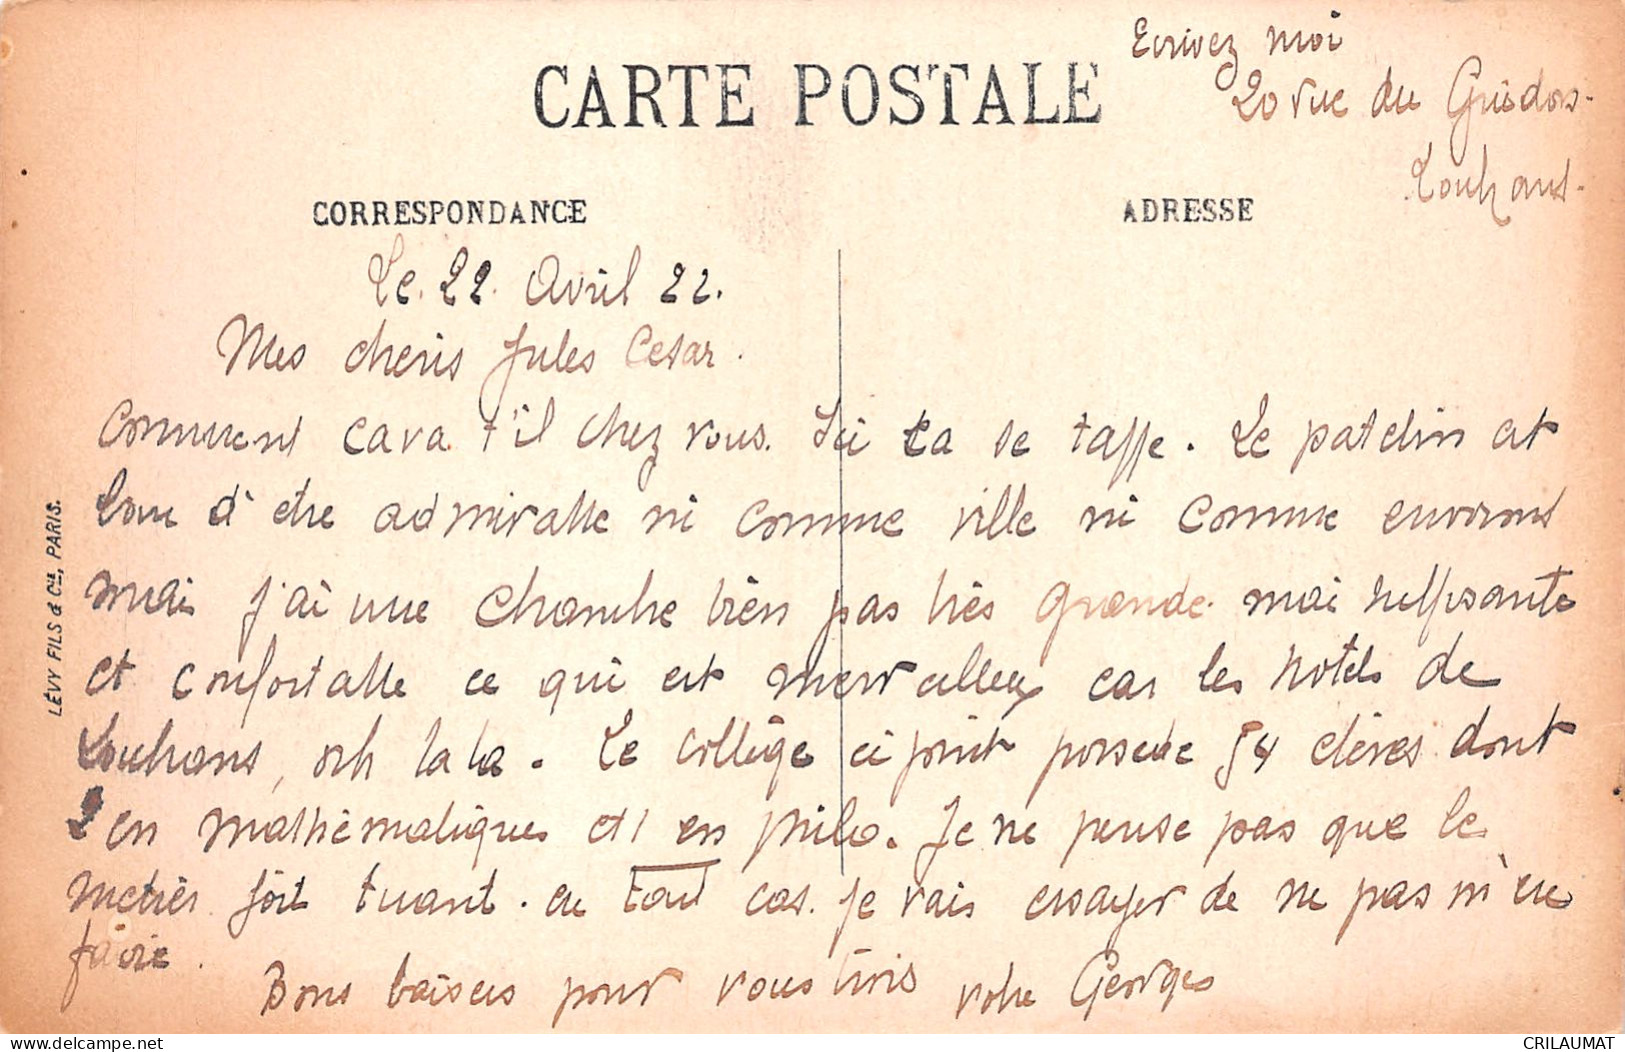 Ecrivez moi
CARTE POSTALE
20 rue du Guidon.
Louhans.
CORRESPONDANCE
ADRESSE
Le. 22. Avril 22.
Mes cheris Jules Cesar.
Comment cava t'il chez vous. Ici ca se tasse. Le patelin est
loin d'etre admirable ni comme ville ni comme environs
mais j'ai une chambre bien pas très grande. mai suffisante
et confortable ce qui est merveilleux car les hotels de
Louhans, oh la la. Le collège ci joint possede 54 élèves dont
2 en mathématiques et 1 en philo. Je ne pense pas que le
metier soit tuant. en tout cas. je vais essayer de ne pas m'en
faire.
Bons baisers pour vous trois votre Georges
LÉVY FILS & Cie, PARIS.
delcampe.net
CRILAUMAT